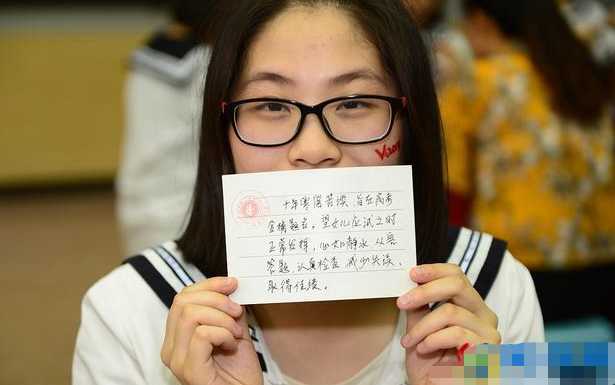 十年寒窗苦读,旨在高考
金榜题名,望女儿应试之时
正常发挥,心如静水,从容
答题,认真检查,减少失误,
取得佳绩。